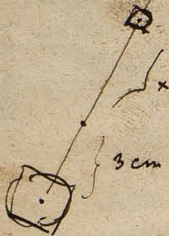 x
3 cm